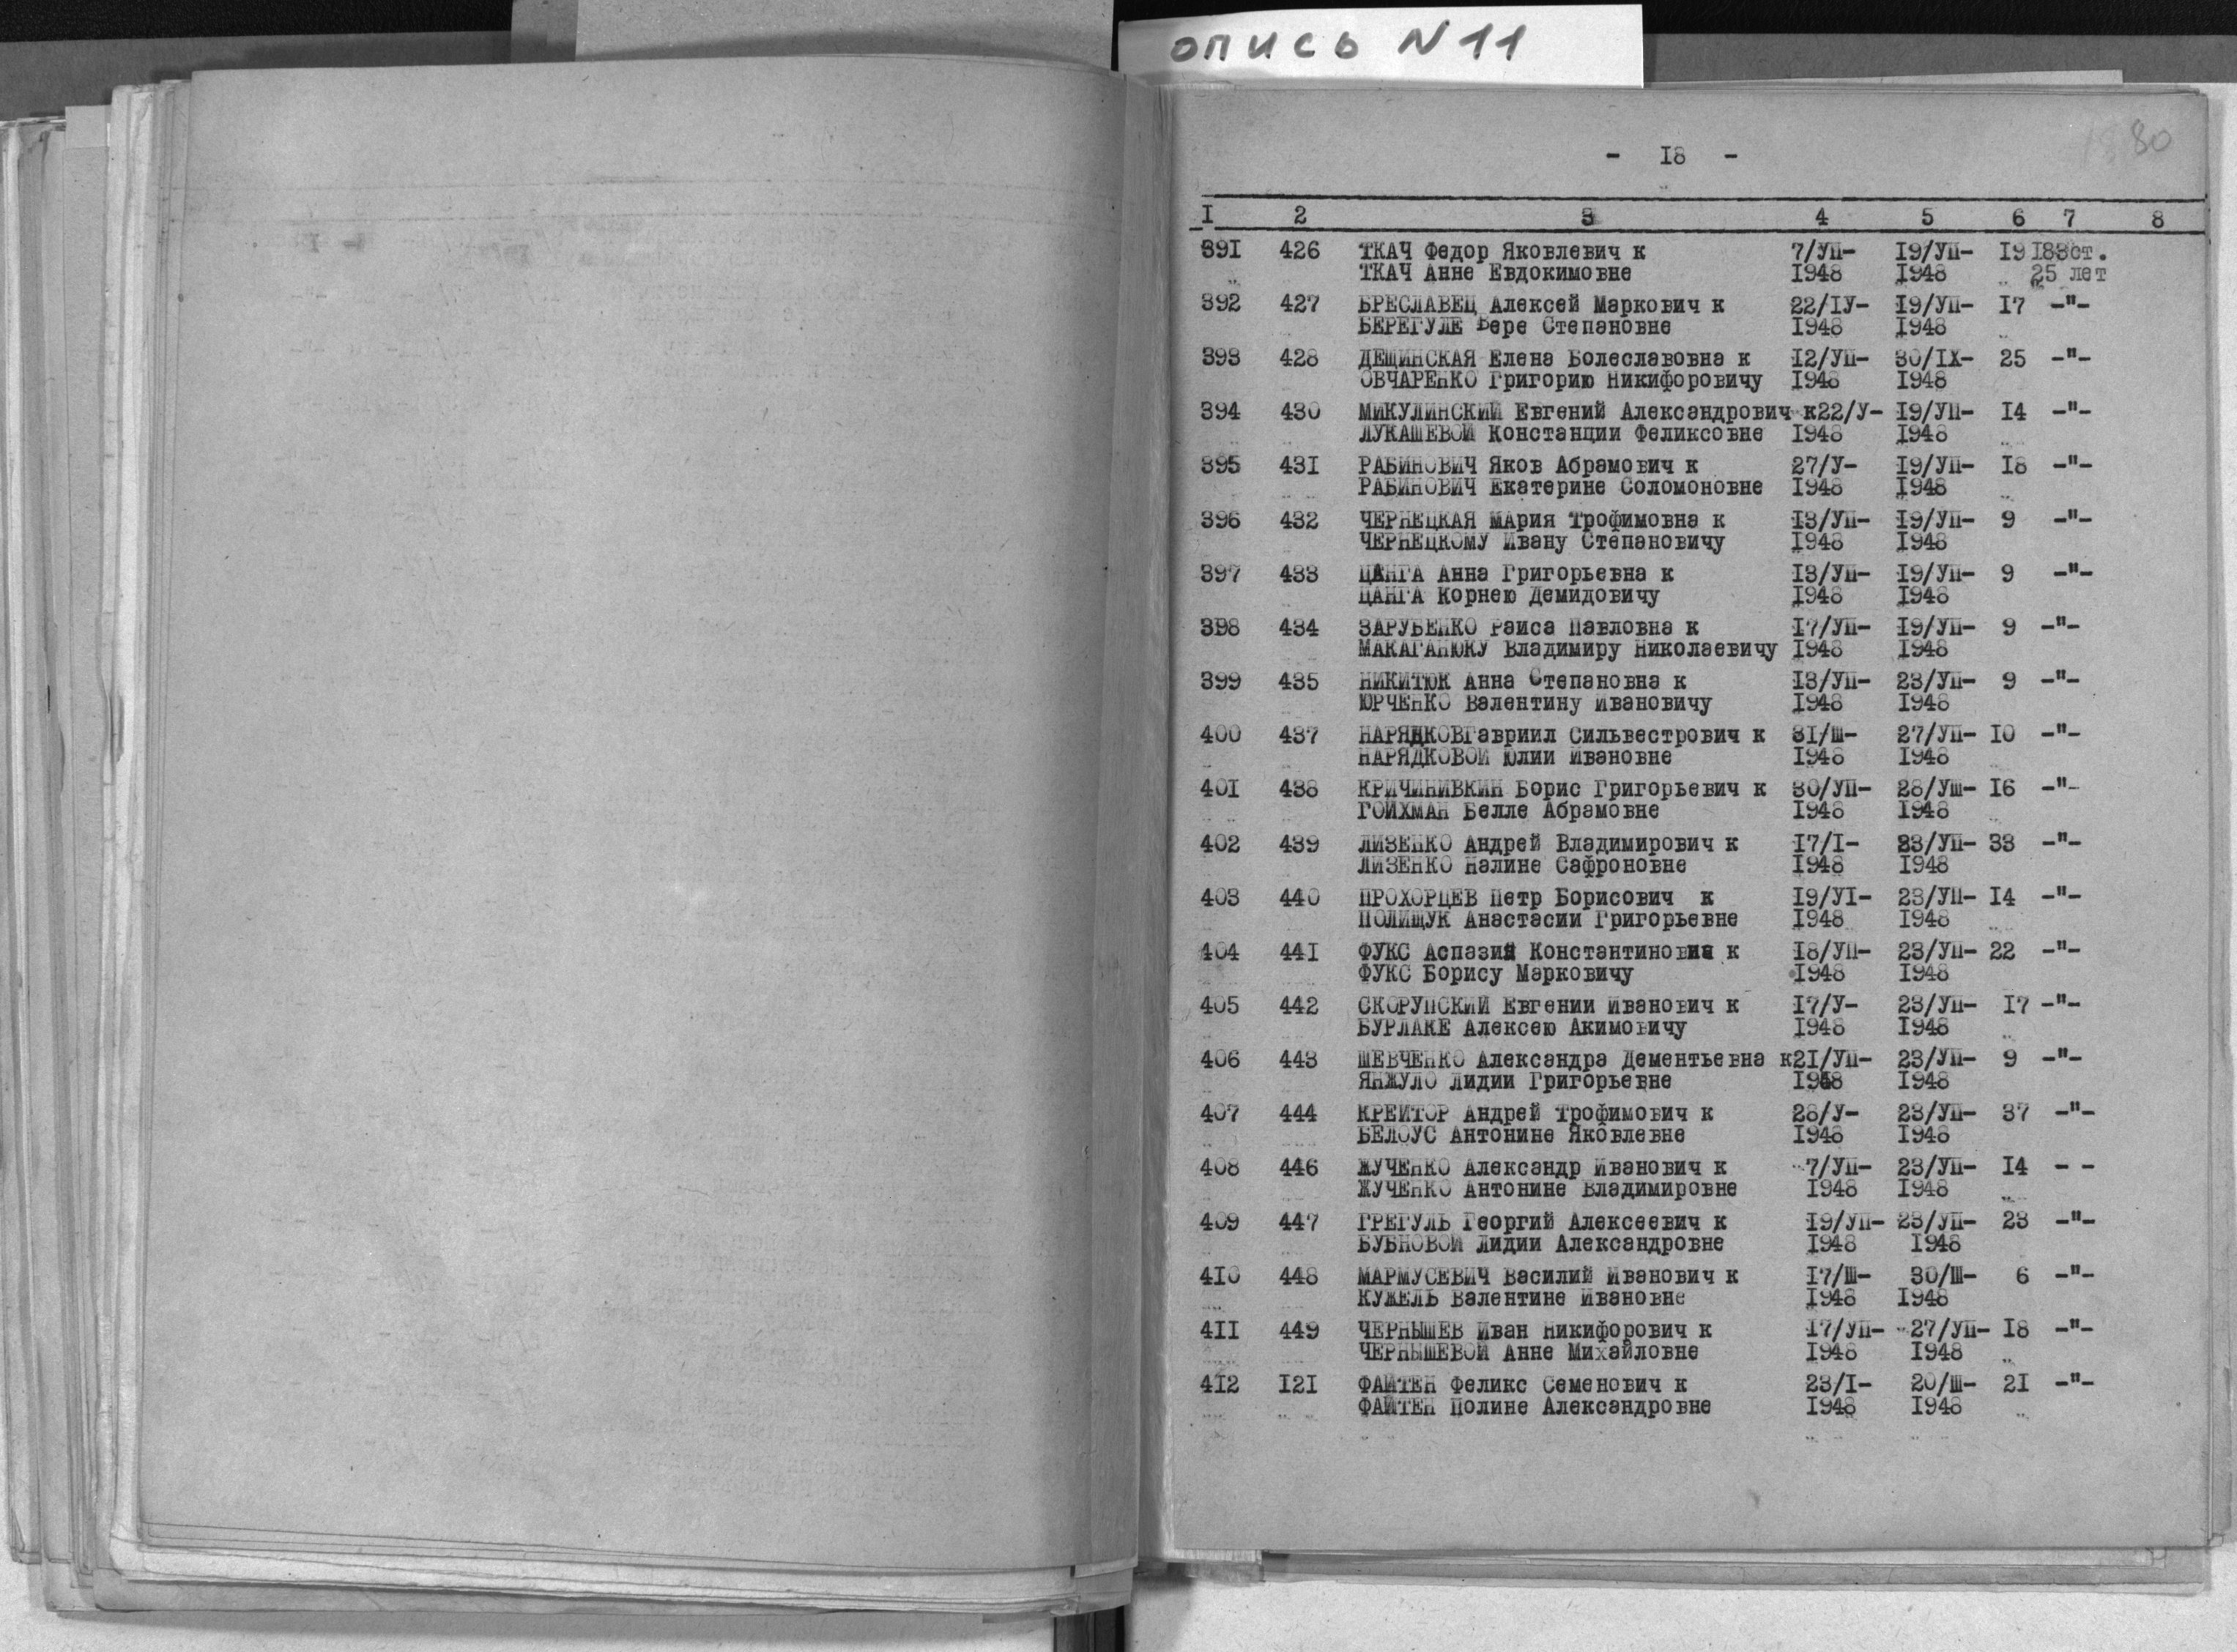 опись N 11
80
- I8 -
I 2 3 4 5 6 7 8
39I 426 ТКАЧ Федор Яковлевич к 7/УП- I9/УП- I9 I83ст.
ТКАЧ Анне Евдокимовне I948 I948 25 лет
392 427 БРЕСЛАВЕЦ Алексей Маркович к 22/IУ- I9/УП- I7 -"-
БЕРЕГУЛЕ Вере Степановне I948 I948
393 428 ДЕЩИНСКАЯ Елена Болеславовна к I2/УП- 30/IX- 25 -"-
ОВЧАРЕНКО Григорию Никифоровичу I948 I948
394 430 МИКУЛИНСКИЙ Евгений Александрович к22/У- I9/УП- I4 -"-
ЛУКАШЕВОЙ Констанции Феликсовне I948 I948
395 43I РАБИНОВИЧ Яков Абрамович к 27/У- I9/УП- I8 -"-
РАБИНОВИЧ Екатерине Соломоновне I948 I948
396 432 ЧЕРНЕЦКАЯ МАрия Трофимовна к I3/УП- I9/УП- 9 -"-
ЧЕРНЕЦКОМУ Ивану Степановичу I948 I948
397 433 ЦАНГА Анна Григорьевна к I3/УП- I9/УП- 9 -"-
ЦАНГА Корнею Демидовичу I948 I948
398 434 ЗАРУБЕНКО Раиса Павловна к I7/УП- I9/УП- 9 -"-
МАКАГАНЮКУ Владимиру Николаевичу I948 I948
399 435 НИКИТЮК Анна Степановна к I3/УП- 23/УП- 9 -"-
ЮРЧЕНКО Валентину Ивановичу I948 I948
400 437 НАРЯДКОВГавриил Сильвестрович к 3I/Ш- 27/УП- I0 -"-
НАРЯДКОВОЙ Юлии Ивановне I948 I948
40I 438 КРИЧИНИВКИН Борис Григорьевич к 30/УП- 28/УШ- I6 -"-
ГОЙХМАН Белле Абрамовне I948 I948
402 439 ЛИЗЕНКО Андрей Владимирович к I7/I- 23/УП- 33 -"-
ЛИЗЕНКО Налине Сафроновне I948 I948
403 440 ПРОХОРЦЕВ Петр Борисович к I9/УI- 23/УП- I4 -"-
ПОЛИЩУК Анастасии Григорьевне I948 I948
404 44I ФУКС Аспазия Константиновна к I8/УП- 23/УП- 22 -"-
ФУКС Борису Марковичу I948 I948
405 442 СКОРУПСКИЙ Евгении Иванович к I7/У- 23/УП- I7 -"-
БУРЛАКЕ Алексею Акимовичу I948 I948
406 443 ШЕВЧЕНКО Александра Дементьевна к2I/УП- 23/УП- 9 -"-
ЯНЖУЛО Лидии Григорьевне I948 I948
407 444 КРЕЙТОР Андрей Трофимович к 28/У- 23/УП- 37 -"-
БЕЛОУС Антонине Яковлевне I948 I948
408 446 ЖУЧЕНКО Александр Иванович к 7/УП- 23/УП- I4 - -
ЖУЧЕНКО Антонине Владимировне I948 I948
409 447 ГРЕГУЛЬ Георгий Алексеевич к I9/УП- 23/УП- 23 -"-
БУБНОВОЙ Лидии Александровне I948 I948
4I0 448 МАРМУСЕВИЧ Василий Иванович к I7/Ш- 30/Ш- 6 -"-
КУЖЕЛЬ Валентине Ивановне I948 I948
4II 449 ЧЕРНЫШЕВ Иван Никифорович к I7/УП- 27/УП- I8 -"-
ЧЕРНЫШЕВОЙ Анне Михайловне I948 I948
4I2 I2I ФАЙТЕН Феликс Семенович к 23/I- 20/Ш- 2I -"-
ФАЙТЕН Полине Александровне I948 I948